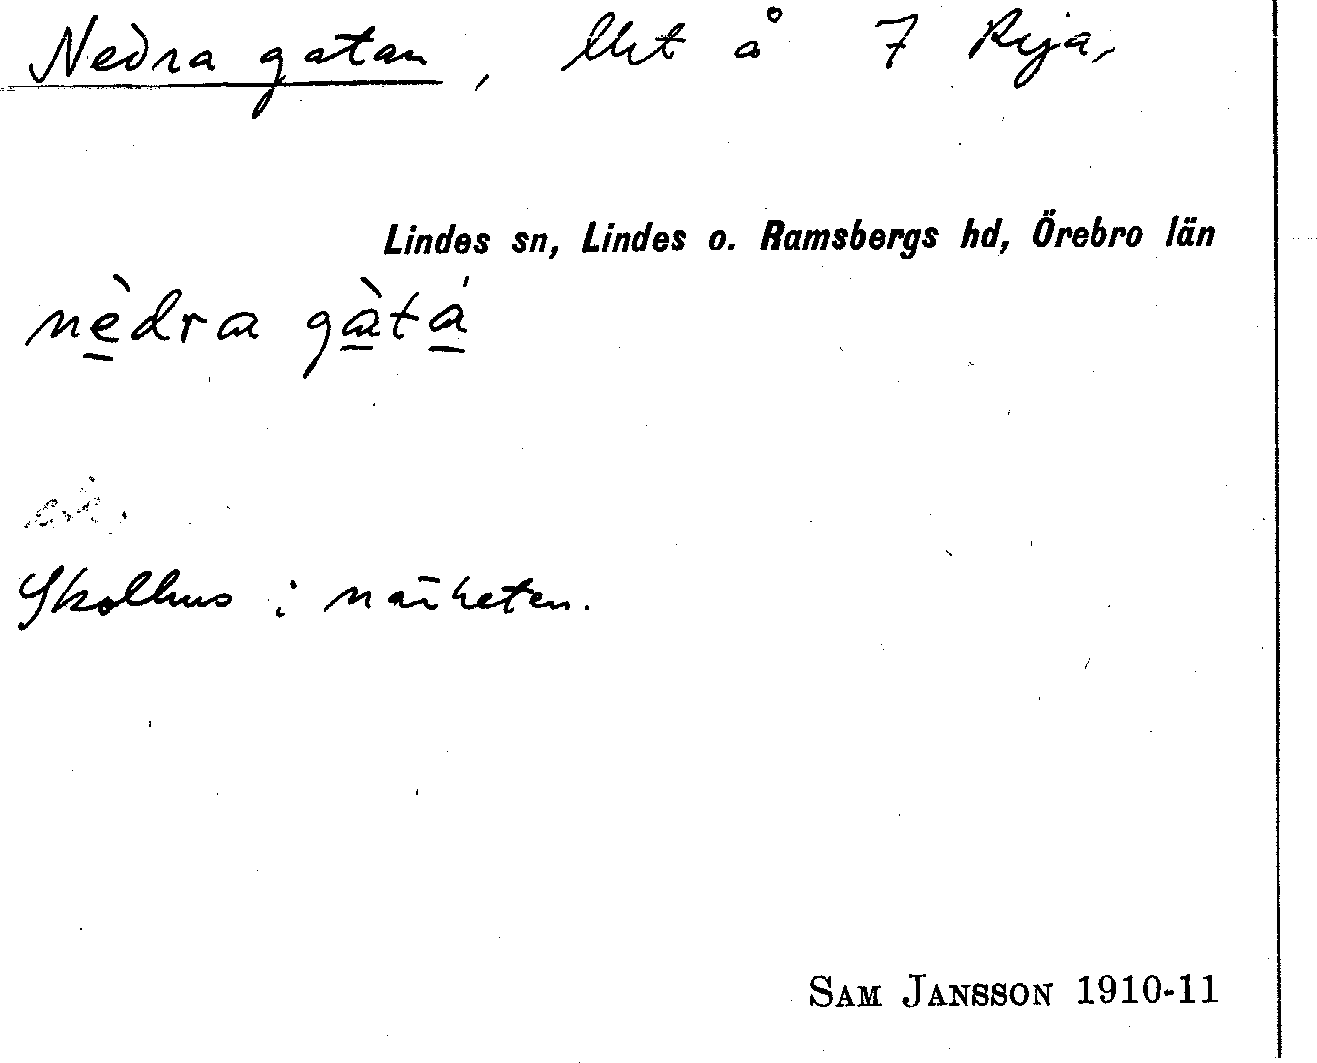 Nedra gatan, lht å 7 Ryja,
Lindes sn, Lindes o. Ramsbergs hd, Örebro län
nèdra gàtá
Skolhus i närheten.
SAM JANSSON 1910-11